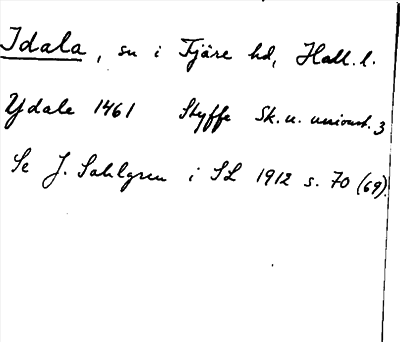 Idala, sn i Fjäre hd, Hall. l.
Ydale 1461 Styffe Sk. u. unionst. 3
Se J. Sahlgren i SL 1912 s. 70 (69).